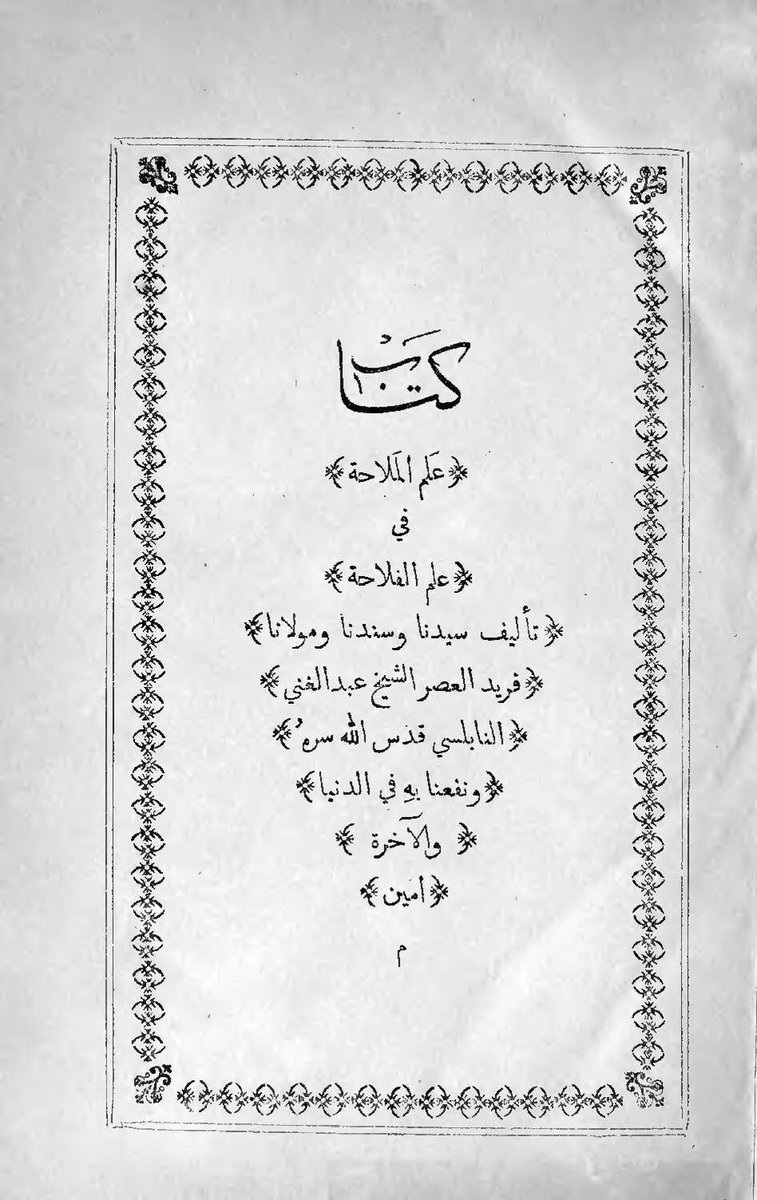 كتاب
﴿علم الملاحة﴾
في
﴿علم الفلاحة﴾
﴿تأليف سيدنا وسندنا ومولانا﴾
﴿فريد العصر الشيخ عبدالغني﴾
﴿النابلسي قدس الله سره﴾
﴿ونفعنا به في الدنيا﴾
﴿والآخرة﴾
﴿أمين﴾
م